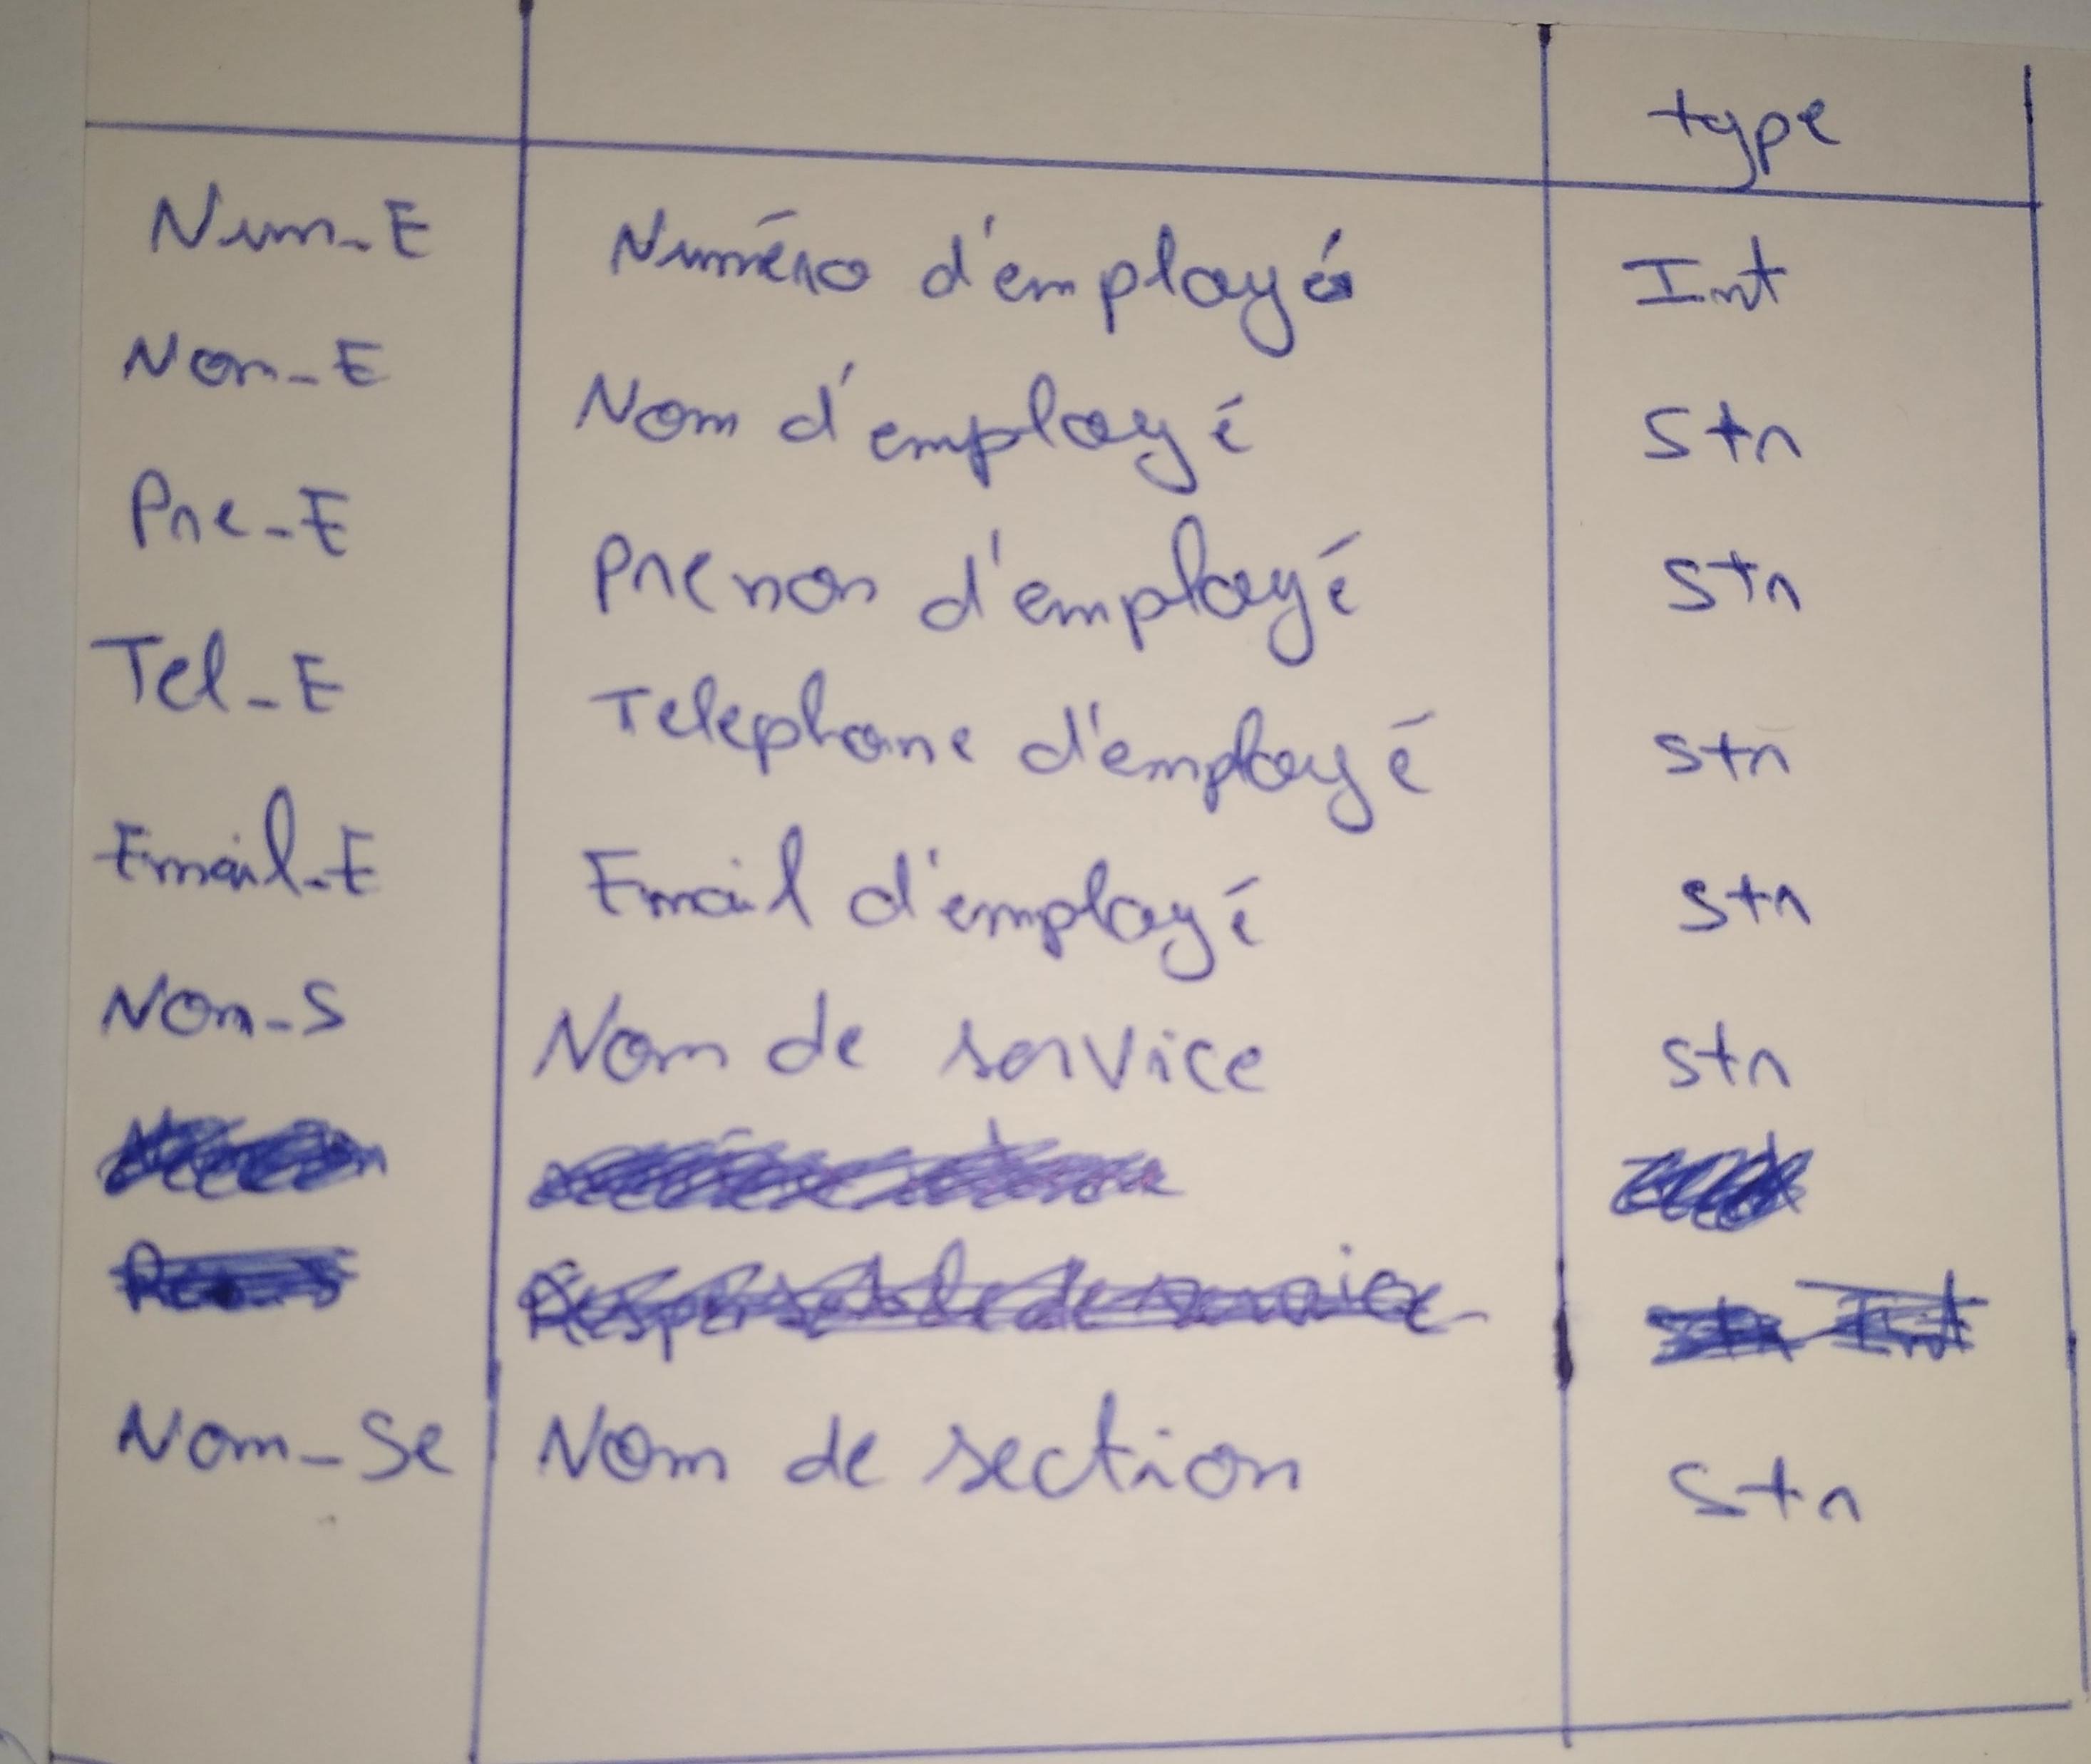 type
Num_E Numéro d'employé Int
Nom_E Nom d'employé Str
Pre_E Prenom d'employé Str
Tel_E Telephone d'employé Str
Email_E Email d'employé Str
Nom_S Nom de service Str
Nom_Se Nom de section Str